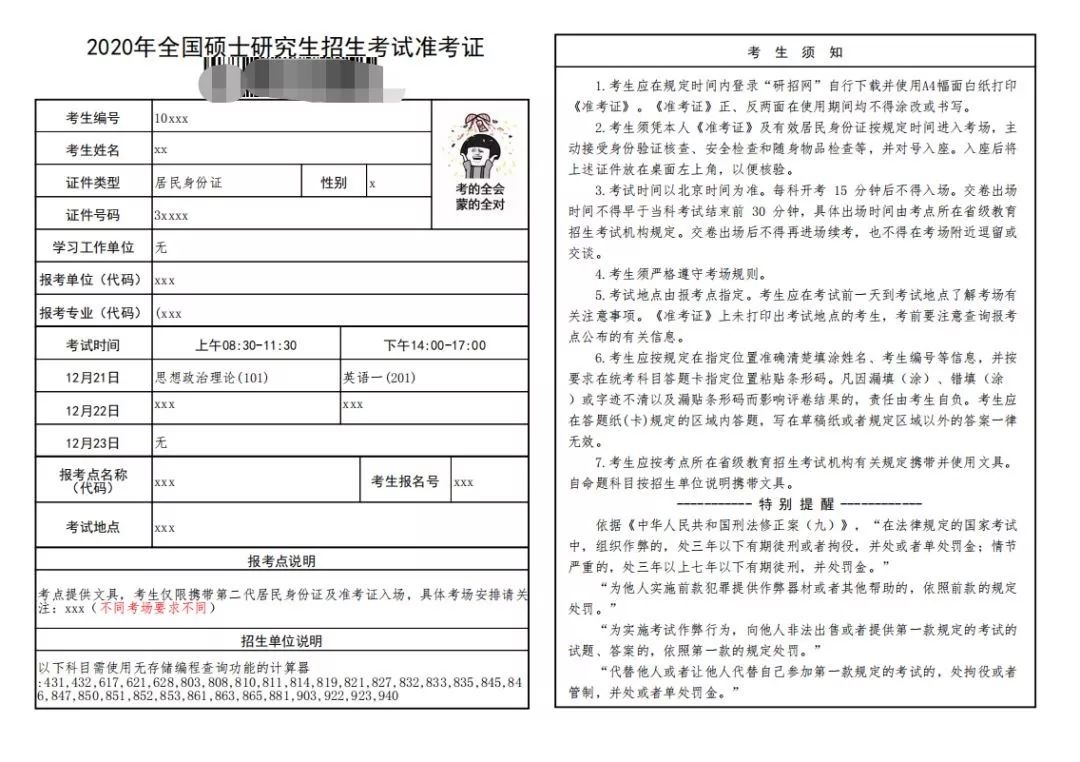 2020年全国硕士研究生招生考试准考证
考生编号 10xxx
考生姓名 xx
证件类型 居民身份证 性别 x
证件号码 3xxxx
考的全会
蒙的全对
学习工作单位 无
报考单位（代码） xxx
报考专业（代码） (xxx
考试时间 上午08:30-11:30 下午14:00-17:00
12月21日 思想政治理论(101) 英语一(201)
12月22日 xxx xxx
12月23日 无
报考点名称
（代码） xxx 考生报名号 xxx
考试地点 xxx
报考点说明
考点提供文具，考生仅限携带第二代居民身份证及准考证入场，具体考场安排请关
注：xxx（不同考场要求不同）
招生单位说明
以下科目需使用无存储编程查询功能的计算器
:431,432,617,621,628,803,808,810,811,814,819,821,827,832,833,835,845,84
6,847,850,851,852,853,861,863,865,881,903,922,923,940
考 生 须 知
1.考生应在规定时间内登录“研招网”自行下载并使用A4幅面白纸打印
《准考证》。《准考证》正、反两面在使用期间均不得涂改或书写。
2.考生须凭本人《准考证》及有效居民身份证按规定时间进入考场，主
动接受身份验证核查、安全检查和随身物品检查等，并对号入座。入座后将
上述证件放在桌面左上角，以便核验。
3.考试时间以北京时间为准。每科开考 15 分钟后不得入场。交卷出场
时间不得早于当科考试结束前 30 分钟，具体出场时间由考点所在省级教育
招生考试机构规定。交卷出场后不得再进场续考，也不得在考场附近逗留或
交谈。
4.考生须严格遵守考场规则。
5.考试地点由报考点指定。考生应在考试前一天到考试地点了解考场有
关注意事项。《准考证》上未打印出考试地点的考生，考前要注意查询报考
点公布的有关信息。
6.考生应按规定在指定位置准确清楚填涂姓名、考生编号等信息，并按
要求在统考科目答题卡指定位置粘贴条形码。凡因漏填（涂）、错填（涂
）或字迹不清以及漏贴条形码而影响评卷结果的，责任由考生自负。考生应
在答题纸(卡)规定的区域内答题，写在草稿纸或者规定区域以外的答案一律
无效。
7.考生应按考点所在省级教育招生考试机构有关规定携带并使用文具。
自命题科目按招生单位说明携带文具。
----------- 特 别 提 醒 ------------
依据《中华人民共和国刑法修正案（九）》，“在法律规定的国家考试
中，组织作弊的，处三年以下有期徒刑或者拘役，并处或者单处罚金；情节
严重的，处三年以上七年以下有期徒刑，并处罚金。”
“为他人实施前款犯罪提供作弊器材或者其他帮助的，依照前款的规定
处罚。”
“为实施考试作弊行为，向他人非法出售或者提供第一款规定的考试的
试题、答案的，依照第一款的规定处罚。”
“代替他人或者让他人代替自己参加第一款规定的考试的，处拘役或者
管制，并处或者单处罚金。”